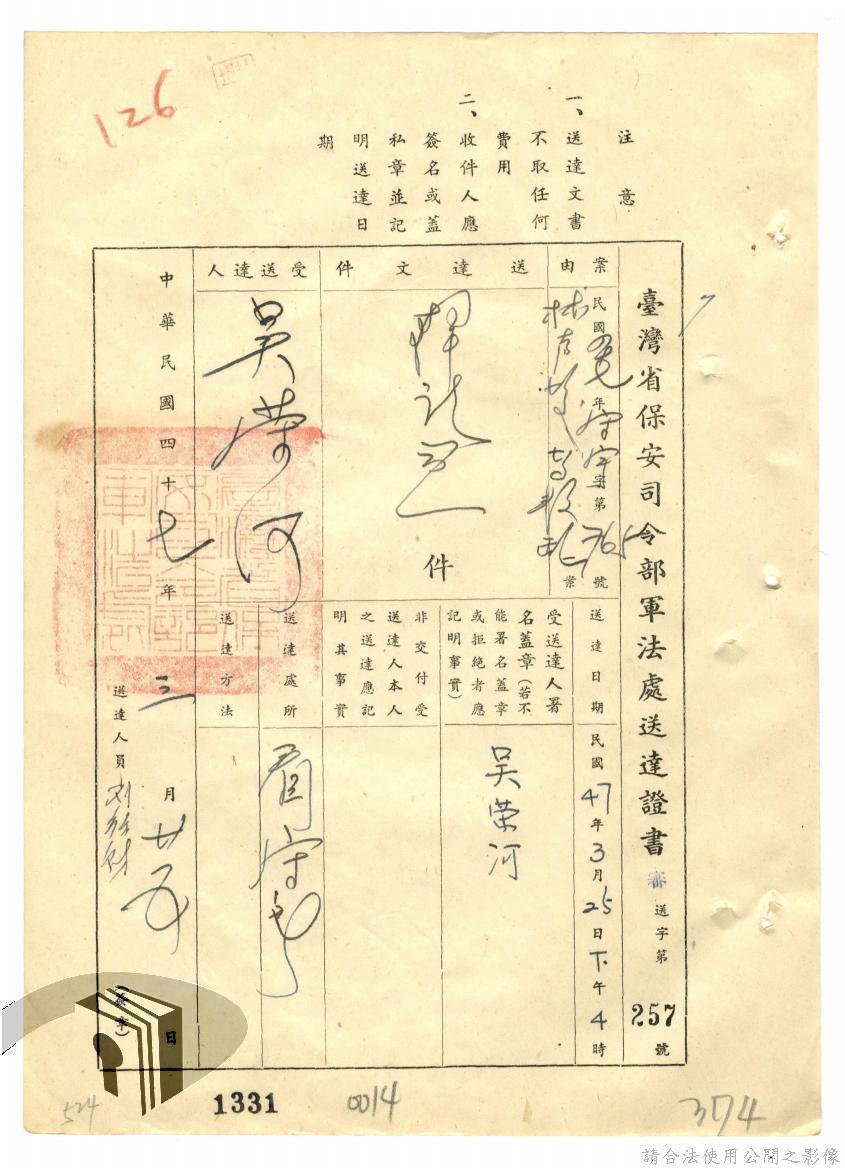 126
注意
一、送達文書
不取任何
費用
二、收件人應
簽名或蓋
私章並記
明送達日
期
臺灣省保安司令部軍法處送達證書 審 送字第 257 號
案由
民國 年 字第 765 號
案
送達文件
件
受送達人
吳榮河
送達日期
民國47年3月25日下午4時
受送達人署
名蓋章(若不
能署名蓋章
或拒絕者應
記明事實)
吳榮河
非交付受
送達人本人
之送達應記
明其事實
送達處所
看守所
送達方法
中華民國四十七年三月廿五日
送達人員
(簽章)
524
1331
0014
374
請合法使用公開之影像